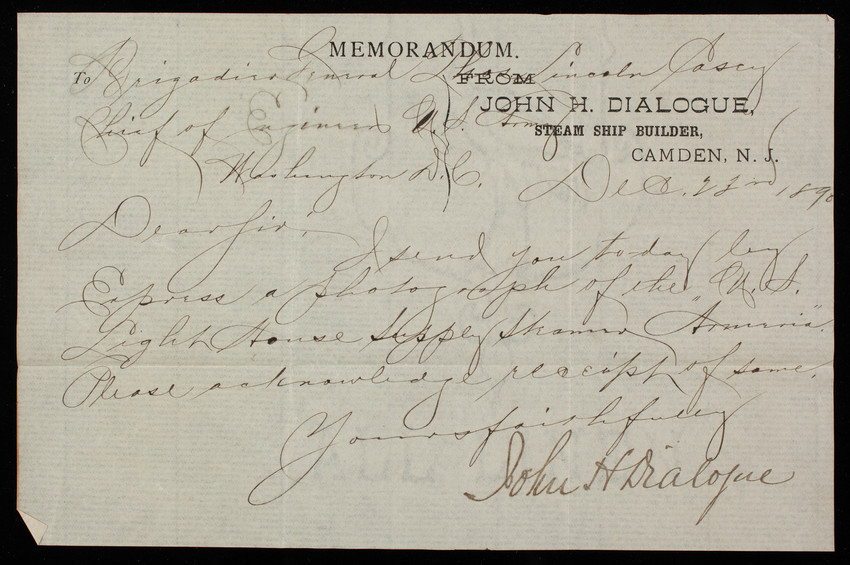 MEMORANDUM.
To Brigadier General Thos Lincoln Casey
FROM
JOHN H. DIALOGUE,
Chief of Engineers U.S. Army
STEAM SHIP BUILDER,
CAMDEN, N. J.
Washington D.C.
Dec. 23rd, 1890
Dear Sir,
I send you to day by
Express a photograph of the U. S.
Light House Supply Steamer "Armeria".
Please acknowledge receipt of same.
Yours faithfully
John H Dialogue